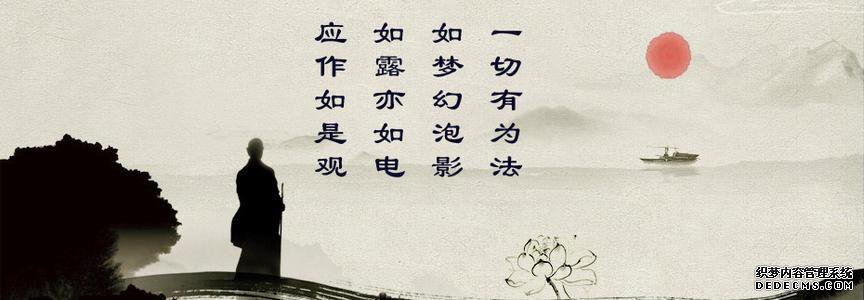 一切有为法
如梦幻泡影
如露亦如电
应作如是观
织梦内容管理系统
DEDECMS.COM